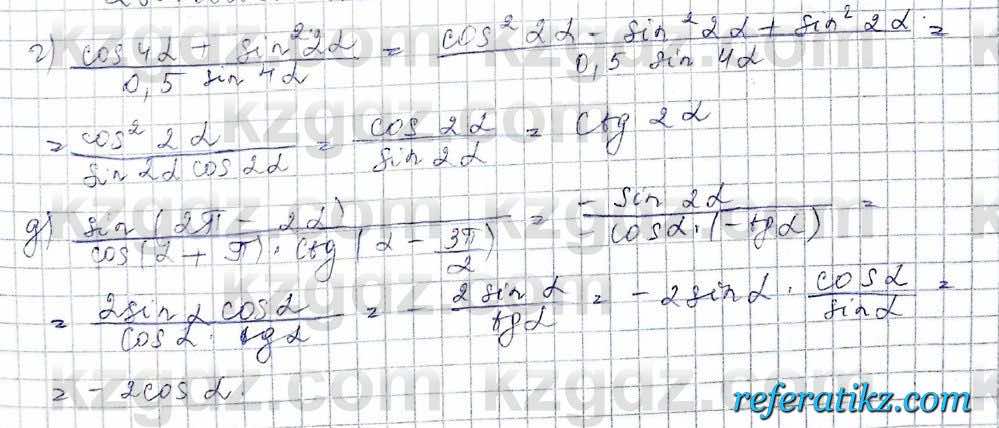 г) (cos 4α + sin² 2α)/(0,5 sin 4α) = (cos² 2α - sin² 2α + sin² 2α)/(0,5 sin 4α) =
= (cos² 2α)/(sin 2α cos 2α) = (cos 2α)/(sin 2α) = ctg 2α
g) (sin(2π - 2α))/(cos(α + π) · ctg(α - 3π/2)) = (- sin 2α)/(- cos α · (- tg α)) =
= (2 sin α cos α)/(cos α · tg α) = - (2 sin α)/(tg α) = - 2 sin α · (cos α)/(sin α) =
= - 2 cos α.
kzgdz.com
referatikz.com